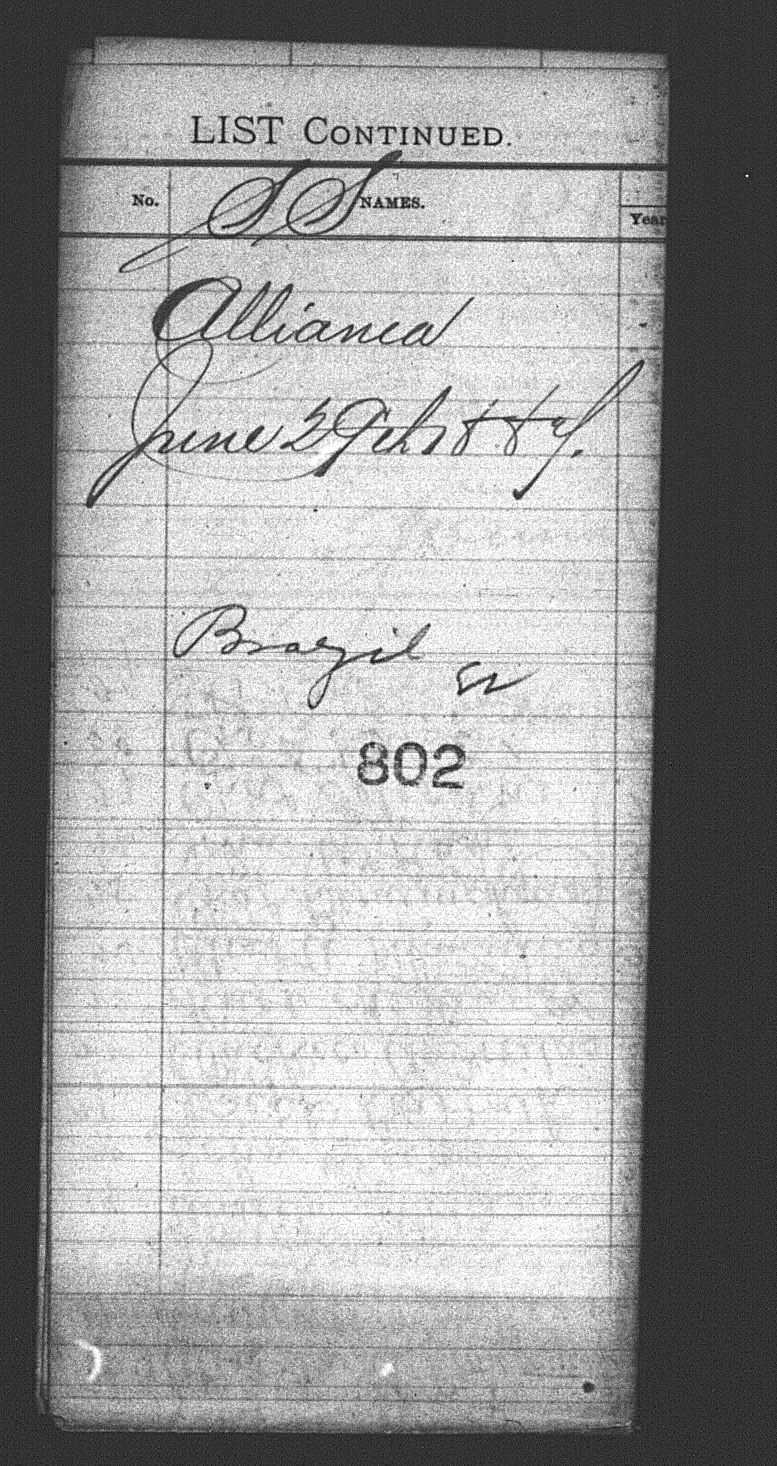 LIST CONTINUED.
No. NAMES. Year
SS
Allianca
June 29th 1887.
Brazil
802